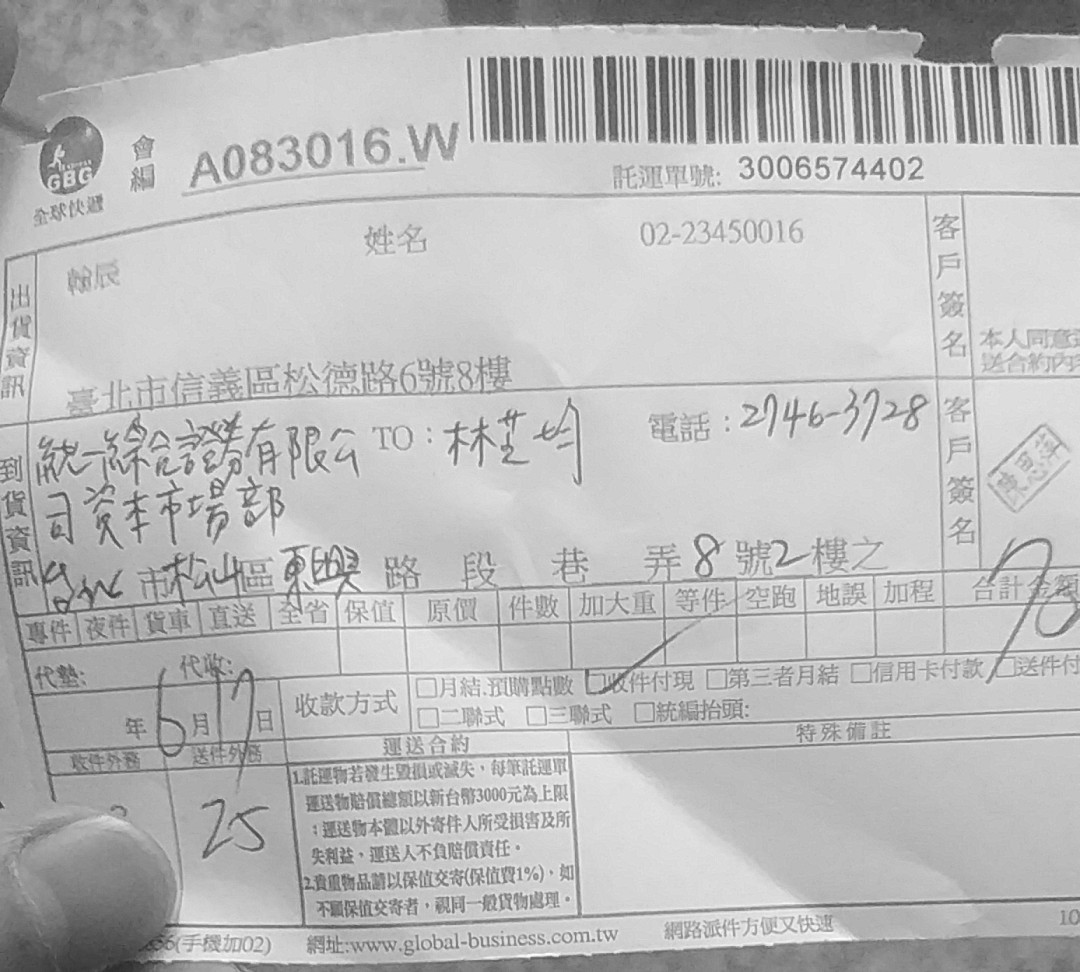 GBG
全球快遞
會編 A083016.W
託運單號: 3006574402
出貨資訊
翰辰 姓名 02-23450016
臺北市信義區松德路6號8樓
客戶簽名
本人同意
送合約內
到貨資訊
統一綜合證券有限公 TO:林 均 電話:2746-3728
司資本市場部
台北市松山區東興路 段 巷 弄8號2樓之
客戶簽名
專件 夜件 貨車 直送 全省 保值 原價 件數 加大重 等件 空跑 地誤 加程 合計金額
70
代墊: 代收:
年6月17日
收款方式 □月結.預購點數 □收件付現 □第三者月結 □信用卡付款 □送件付
□二聯式 □三聯式 □統編抬頭:
收件外務 送件外務 運送合約 特殊備註
25
1.託運物若發生毀損或滅失,每筆託運單
運送物賠償總額以新台幣3000元為上限
;運送物本體以外寄件人所受損害及所
失利益,運送人不負賠償責任。
2.貴重物品請以保值交寄(保值費1%),如
不願保值交寄者,視同一般貨物處理。
(手機加02) 網址:www.global-business.com.tw 網路派件方便又快速 10